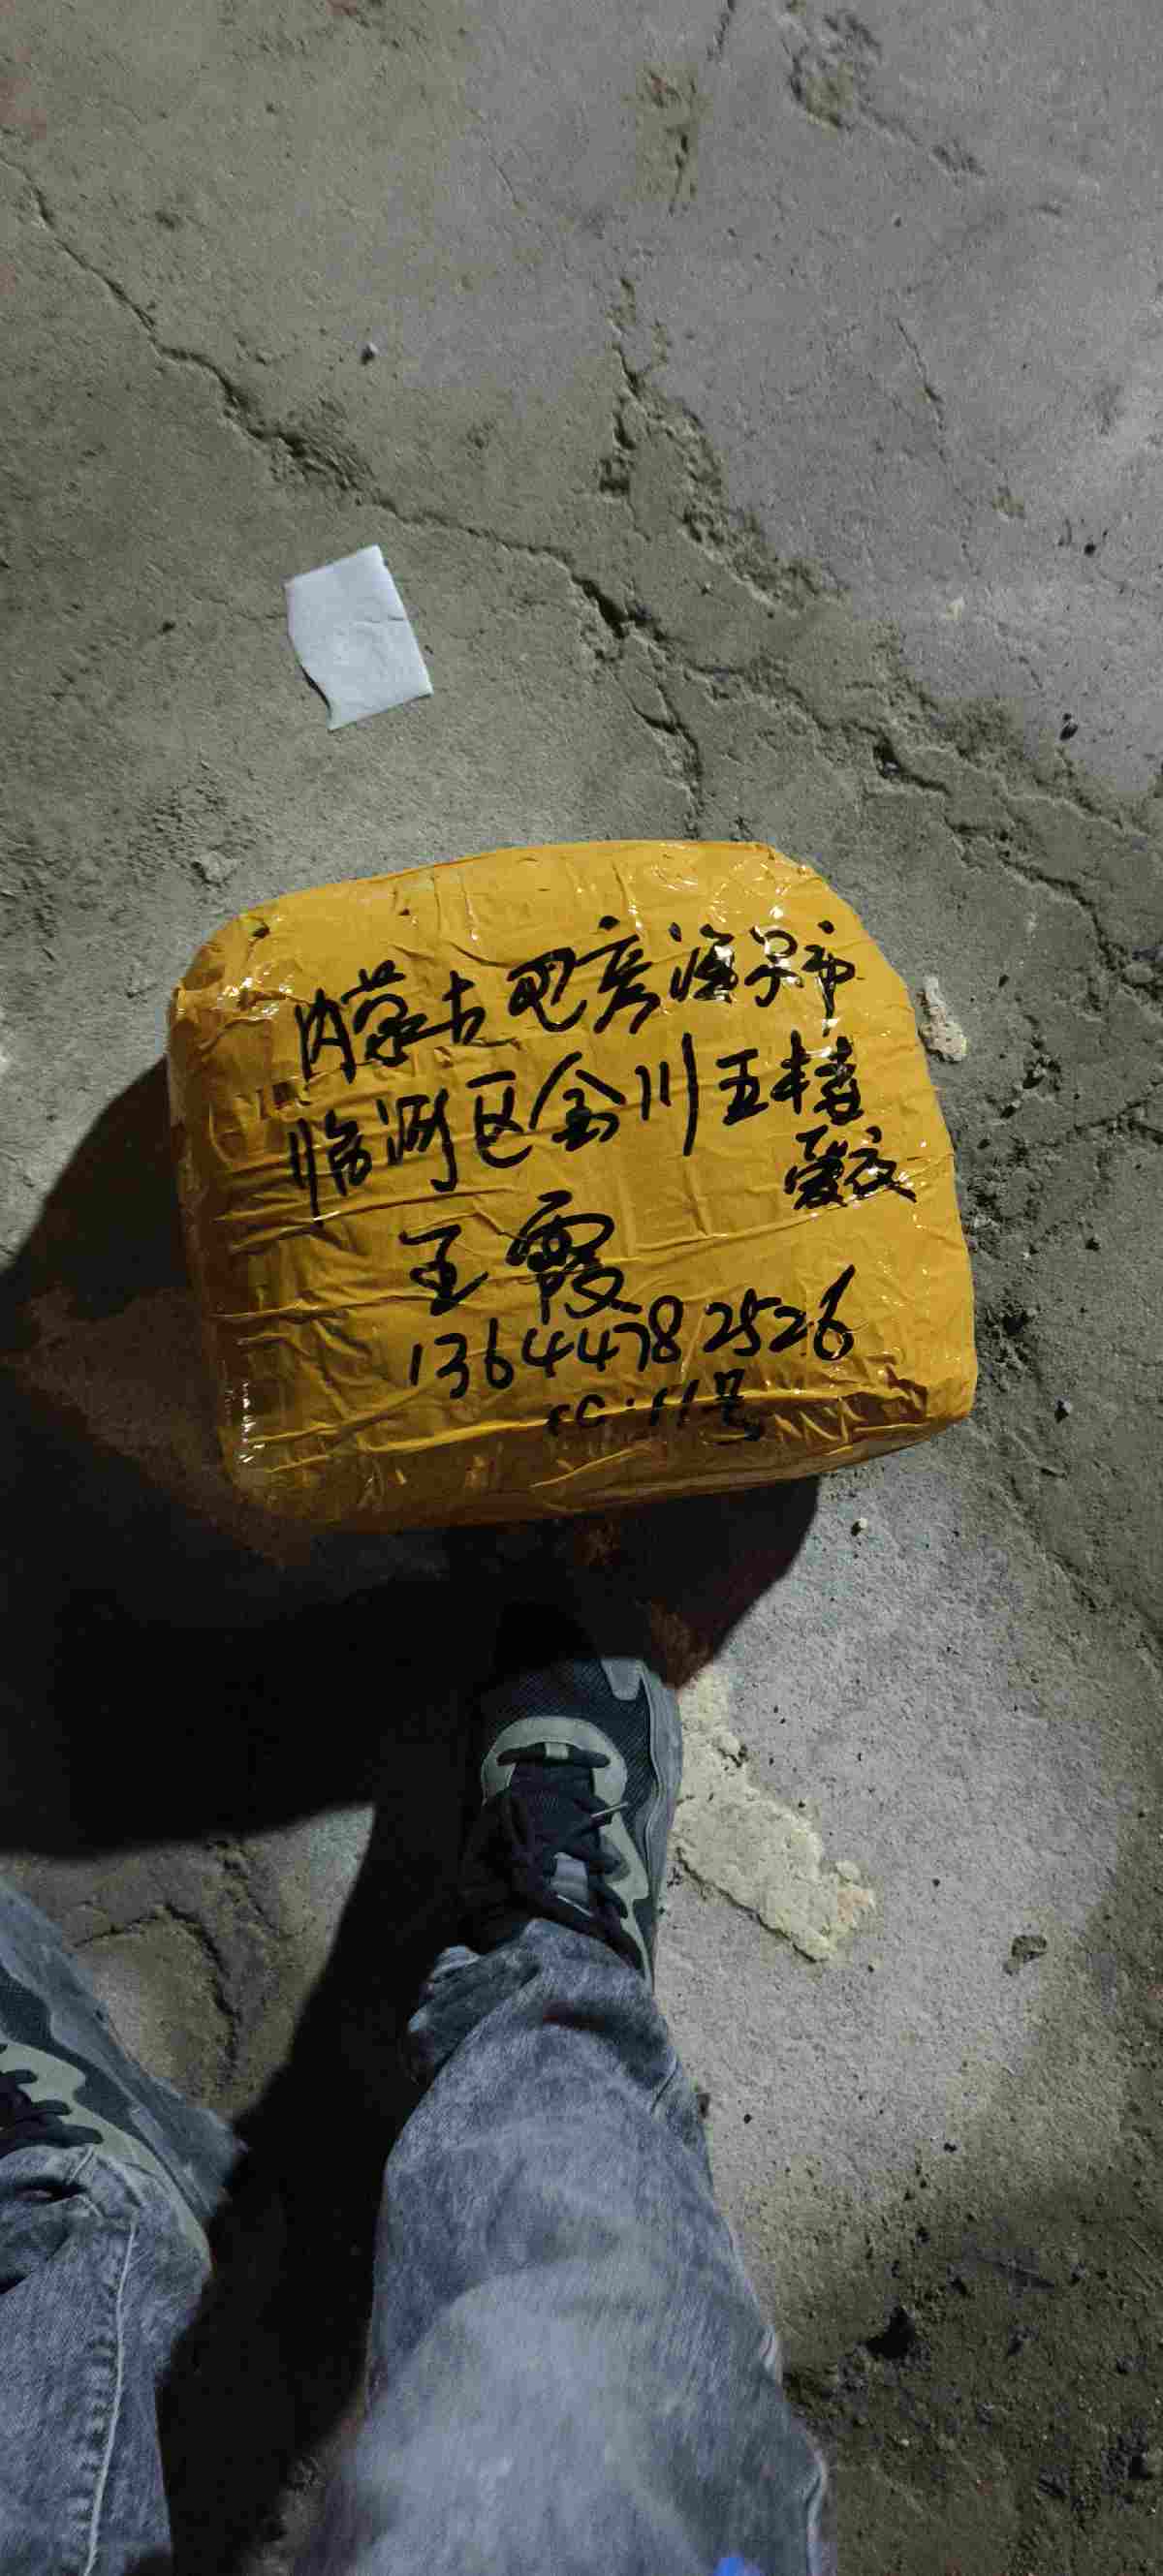 内蒙古巴彦淖尔市
临河区金川五楼
王霞
13644782526
11号